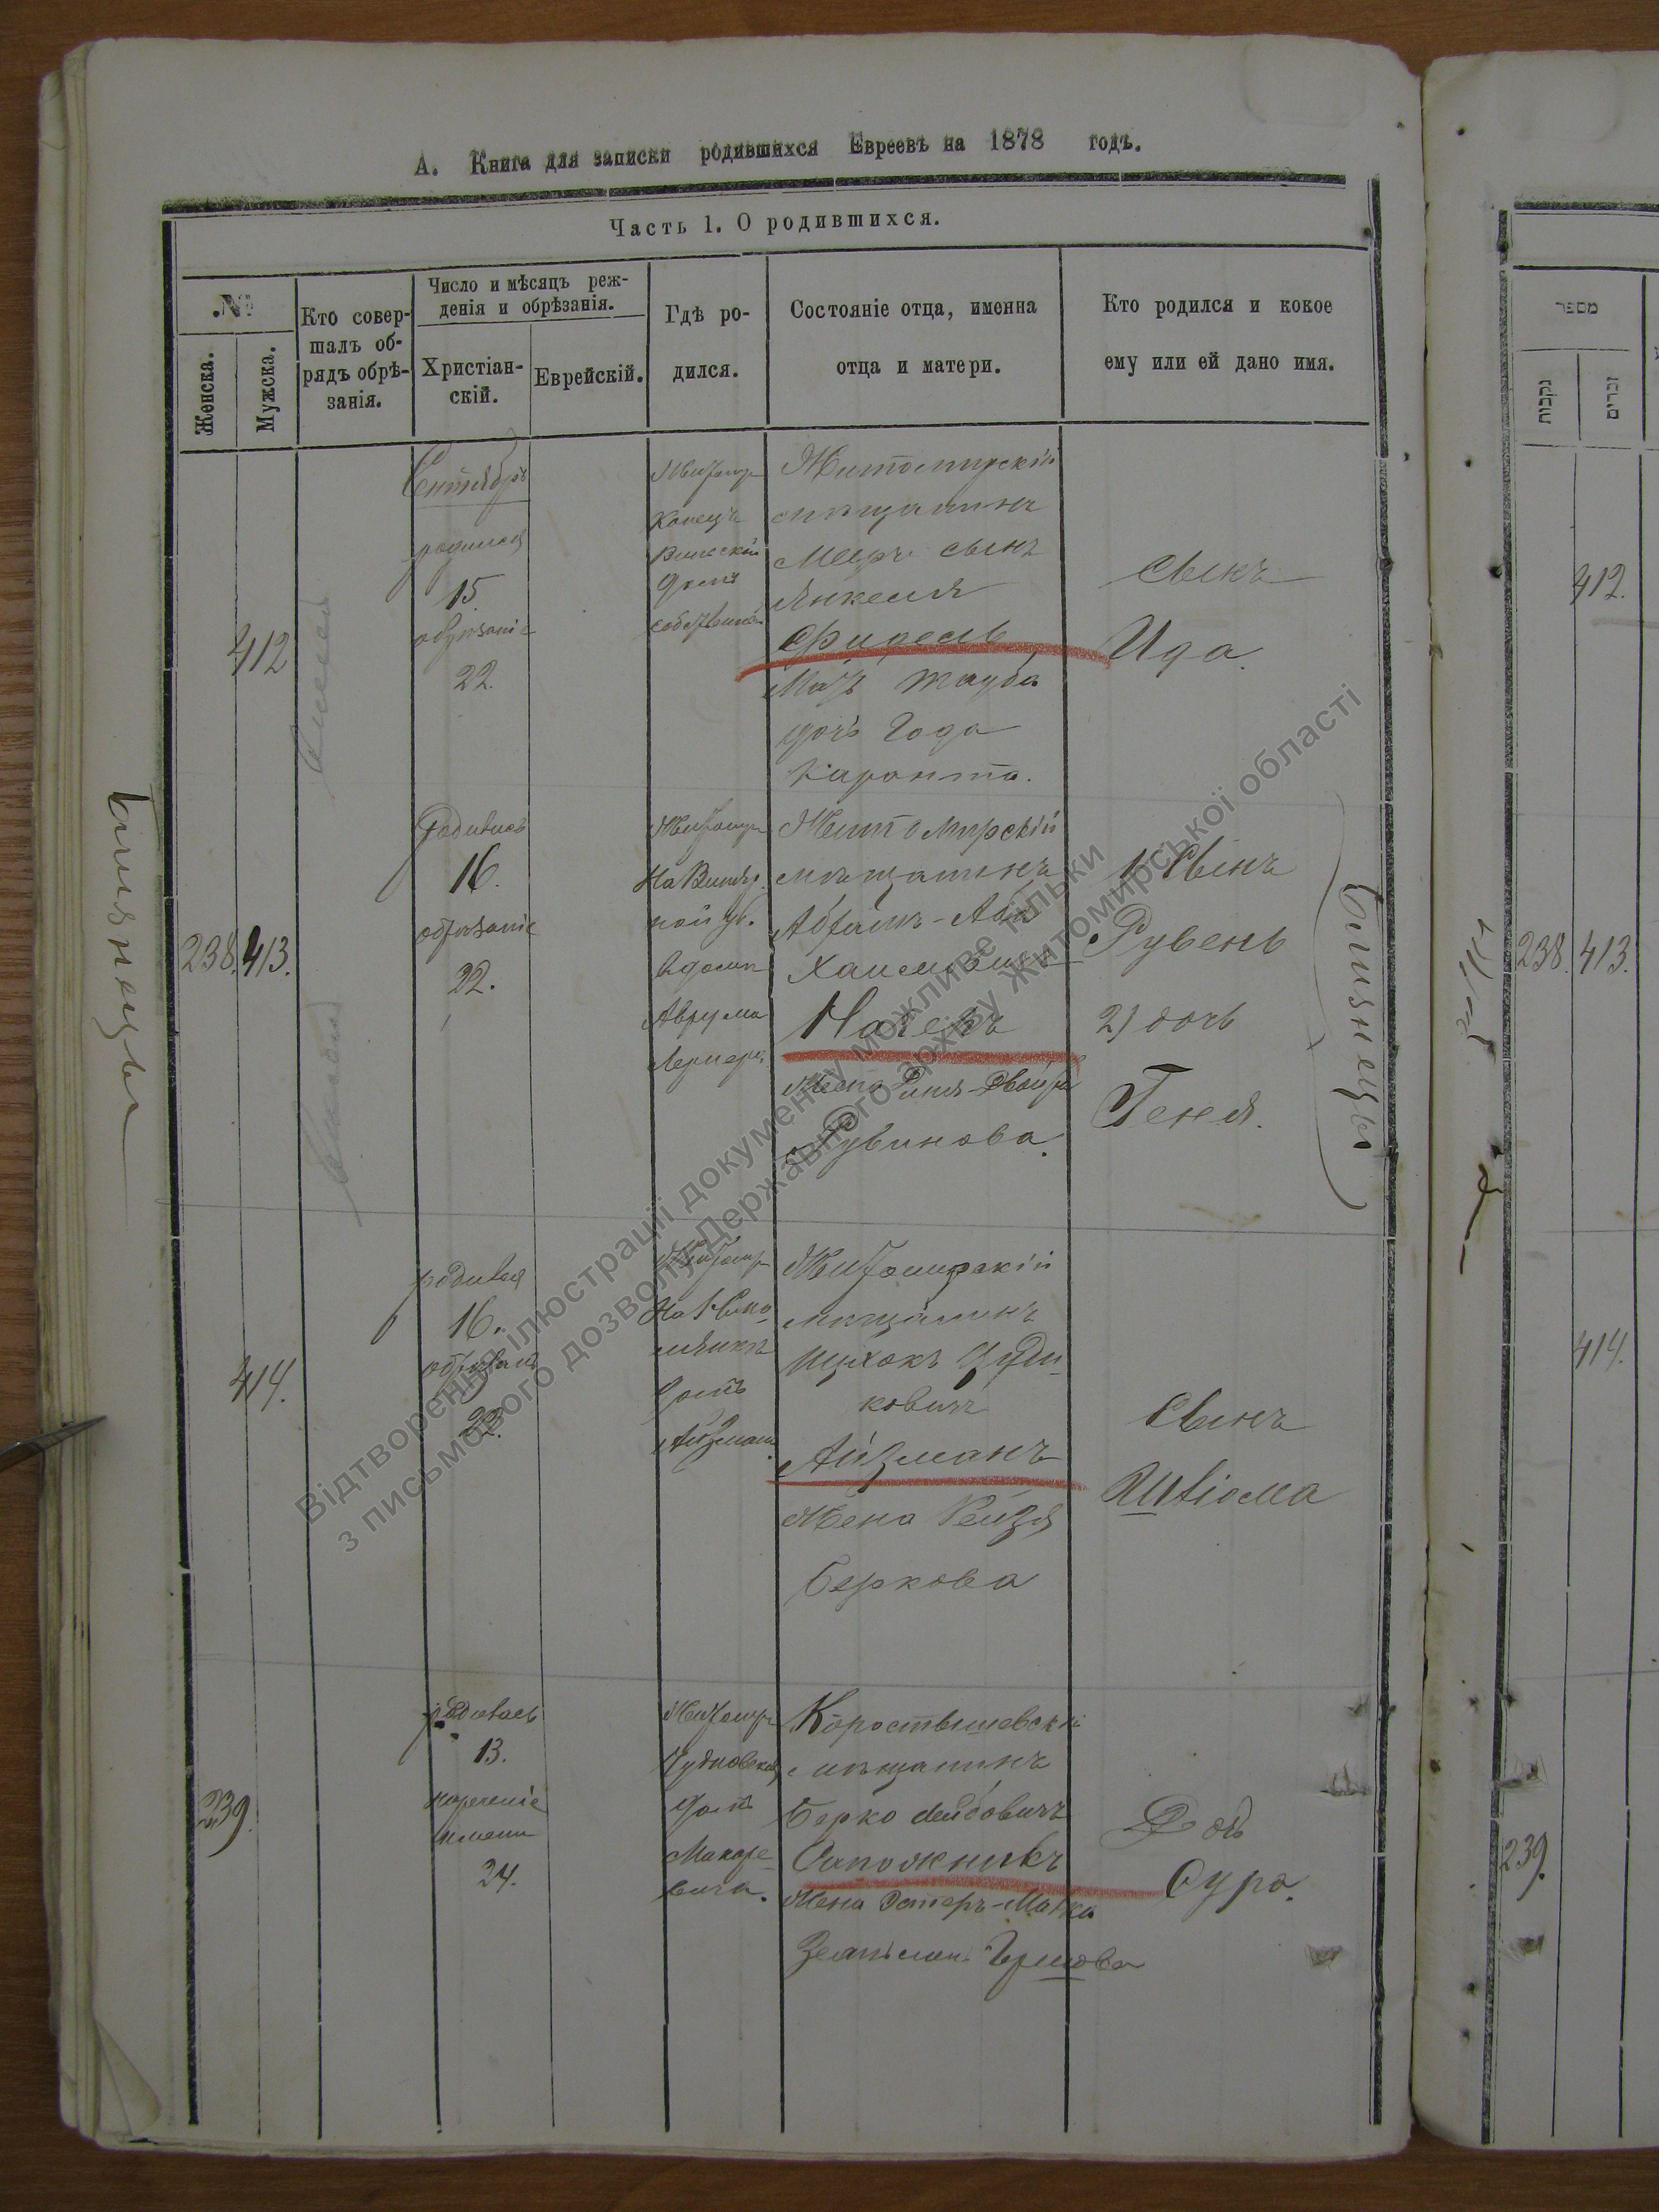 А. Книга для записки родившихся Евреевъ на 1878 годъ.
Часть 1. О родившихся.
№
Женска.
Мужска.
Кто совер-
шалъ об-
рядъ обрѣ-
занія.
Число и мѣсяцъ реж-
денія и обрѣзанія.
Христіан-
скій.
Еврейскій.
Гдѣ ро-
дился.
Состояніе отца, именна
отца и матери.
Кто родился и кокое
ему или ей дано имя.
412
Сентябрь
родился
15.
обрѣзаніе
22.
Житомиръ
конецъ
домъ
Житомирскій
мѣщанинъ
Мееръ сынъ
Янкеля
Фидель
Мать Тауба
дочь Года
Сынъ
Ида.
Близнецы
238. 413.
Родились
16.
обрѣзаніе
22.
Житомиръ
На
ной ул.
в домѣ
Аврума
Житомирскій
мѣщанинъ
Абрамъ-Аба
Хаимовичъ
Жена Двойра
Рувинова.
1) Сынъ
Рувень
2) дочь
Геня.
Близнецы
414.
родился
16.
обрѣзаніе
23.
Житомиръ
домъ
Айзмана
Житомирскій
мѣщанинъ
Ицхокъ
ковичъ
Айзманъ
Жена Рейзя
Беркова
Сынъ
Шліома
239.
родилась
13.
нареченіе
имени
24.
Житомиръ
Чудновская
домъ
Макаре-
вича.
Коростышевскій
мѣщанинъ
Берко Лейбовичъ
Сапожникъ
Жена Эстеръ-Малка
Гершова
Дочь
Сура.
מספר
נקבות
זכרים
412.
238. 413.
414.
239.
Відтворення ілюстрації документу можливе тільки
з письмового дозволу Державного архіву Житомирської області